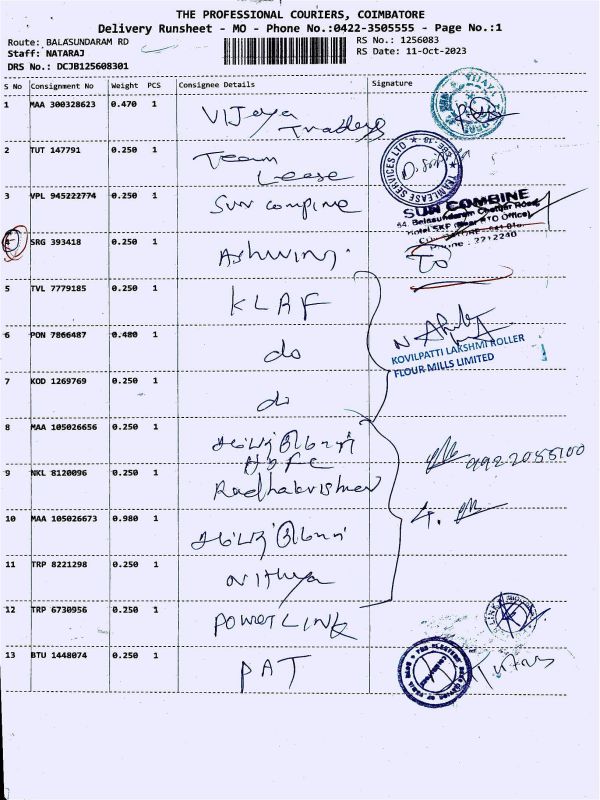 THE PROFESSIONAL COURIERS, COIMBATORE
Delivery Runsheet - MO - Phone No.:0422-3505555 - Page No.:1
Route: BALASUNDARAM RD
RS No.: 1256083
Staff: NATARAJ
RS Date: 11-Oct-2023
DRS No.: DCJB125608301
S No Consignment No Weight PCS Consignee Details Signature
1 MAA 300328623 0.470 1 Vijaya Traders
2 TUT 147791 0.250 1 Team Lease
TEAMLEASE SERVICES LTD
3 VPL 945222774 0.250 1 Sun compine
SUN COMBINE
64, Balasundaram Chettiar Road,
Hotel SKF (Near RTO Office)
Phone : 2212240
4 SRG 393418 0.250 1 Ashwin
TO
5 TVL 7779185 0.250 1 KLAF
6 PON 7866487 0.480 1 do
KOVILPATTI LAKSHMI ROLLER
FLOUR MILLS LIMITED
7 KOD 1269769 0.250 1 do
8 MAA 105026656 0.250 1
9 NKL 8120096 0.250 1 Radhakrishnan
10 MAA 105026673 0.980 1
11 TRP 8221298 0.250 1 Nithya
12 TRP 6730956 0.250 1 POWER LINK
13 BTU 1448074 0.250 1 PAT